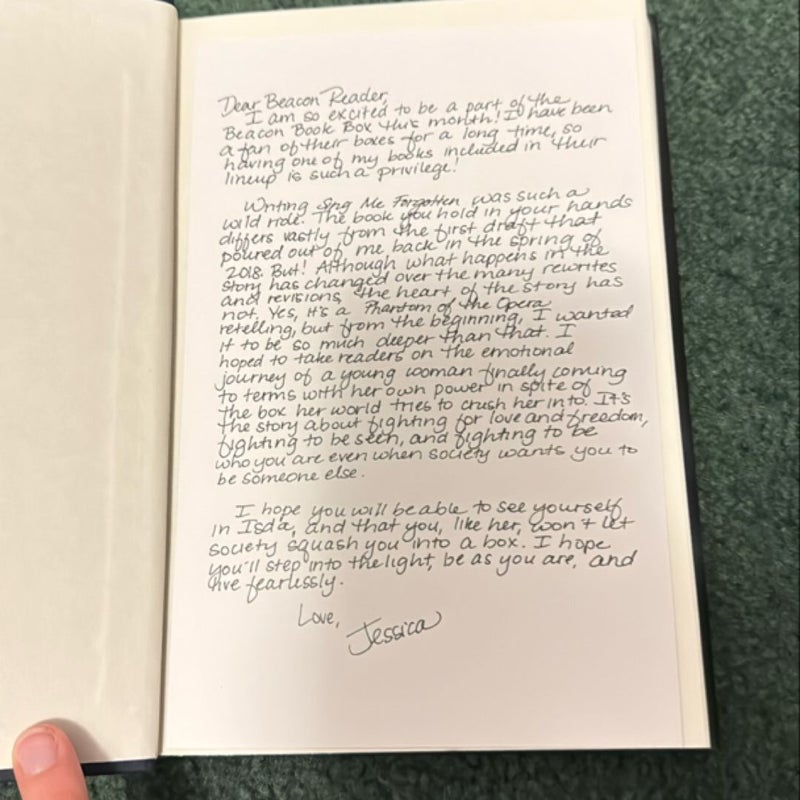 Dear Beacon Reader,
I am so excited to be a part of the
Beacon Book Box this month! I have been
a fan of their boxes for a long time, so
having one of my books included in their
lineup is such a privilege!
Writing Sing Me Forgotten was such a
wild ride. The book you hold in your hands
differs vastly from the first draft that
poured out of me back in the spring of
2018. But! Although what happens in the
story has changed over the many rewrites
and revisions, the heart of the story has
not. Yes, it's a Phantom of the Opera
retelling, but from the beginning, I wanted
it to be so much deeper than that. I
hoped to take readers on the emotional
journey of a young woman finally coming
to terms with her own power in spite of
the box her world tries to crush her into. It's
the story about fighting for love and freedom,
fighting to be seen, and fighting to be
who you are even when society wants you to
be someone else.
I hope you will be able to see yourself
in Isda, and that you, like her, won't let
society squash you into a box. I hope
you'll step into the light, be as you are, and
live fearlessly.
Love,
Jessica